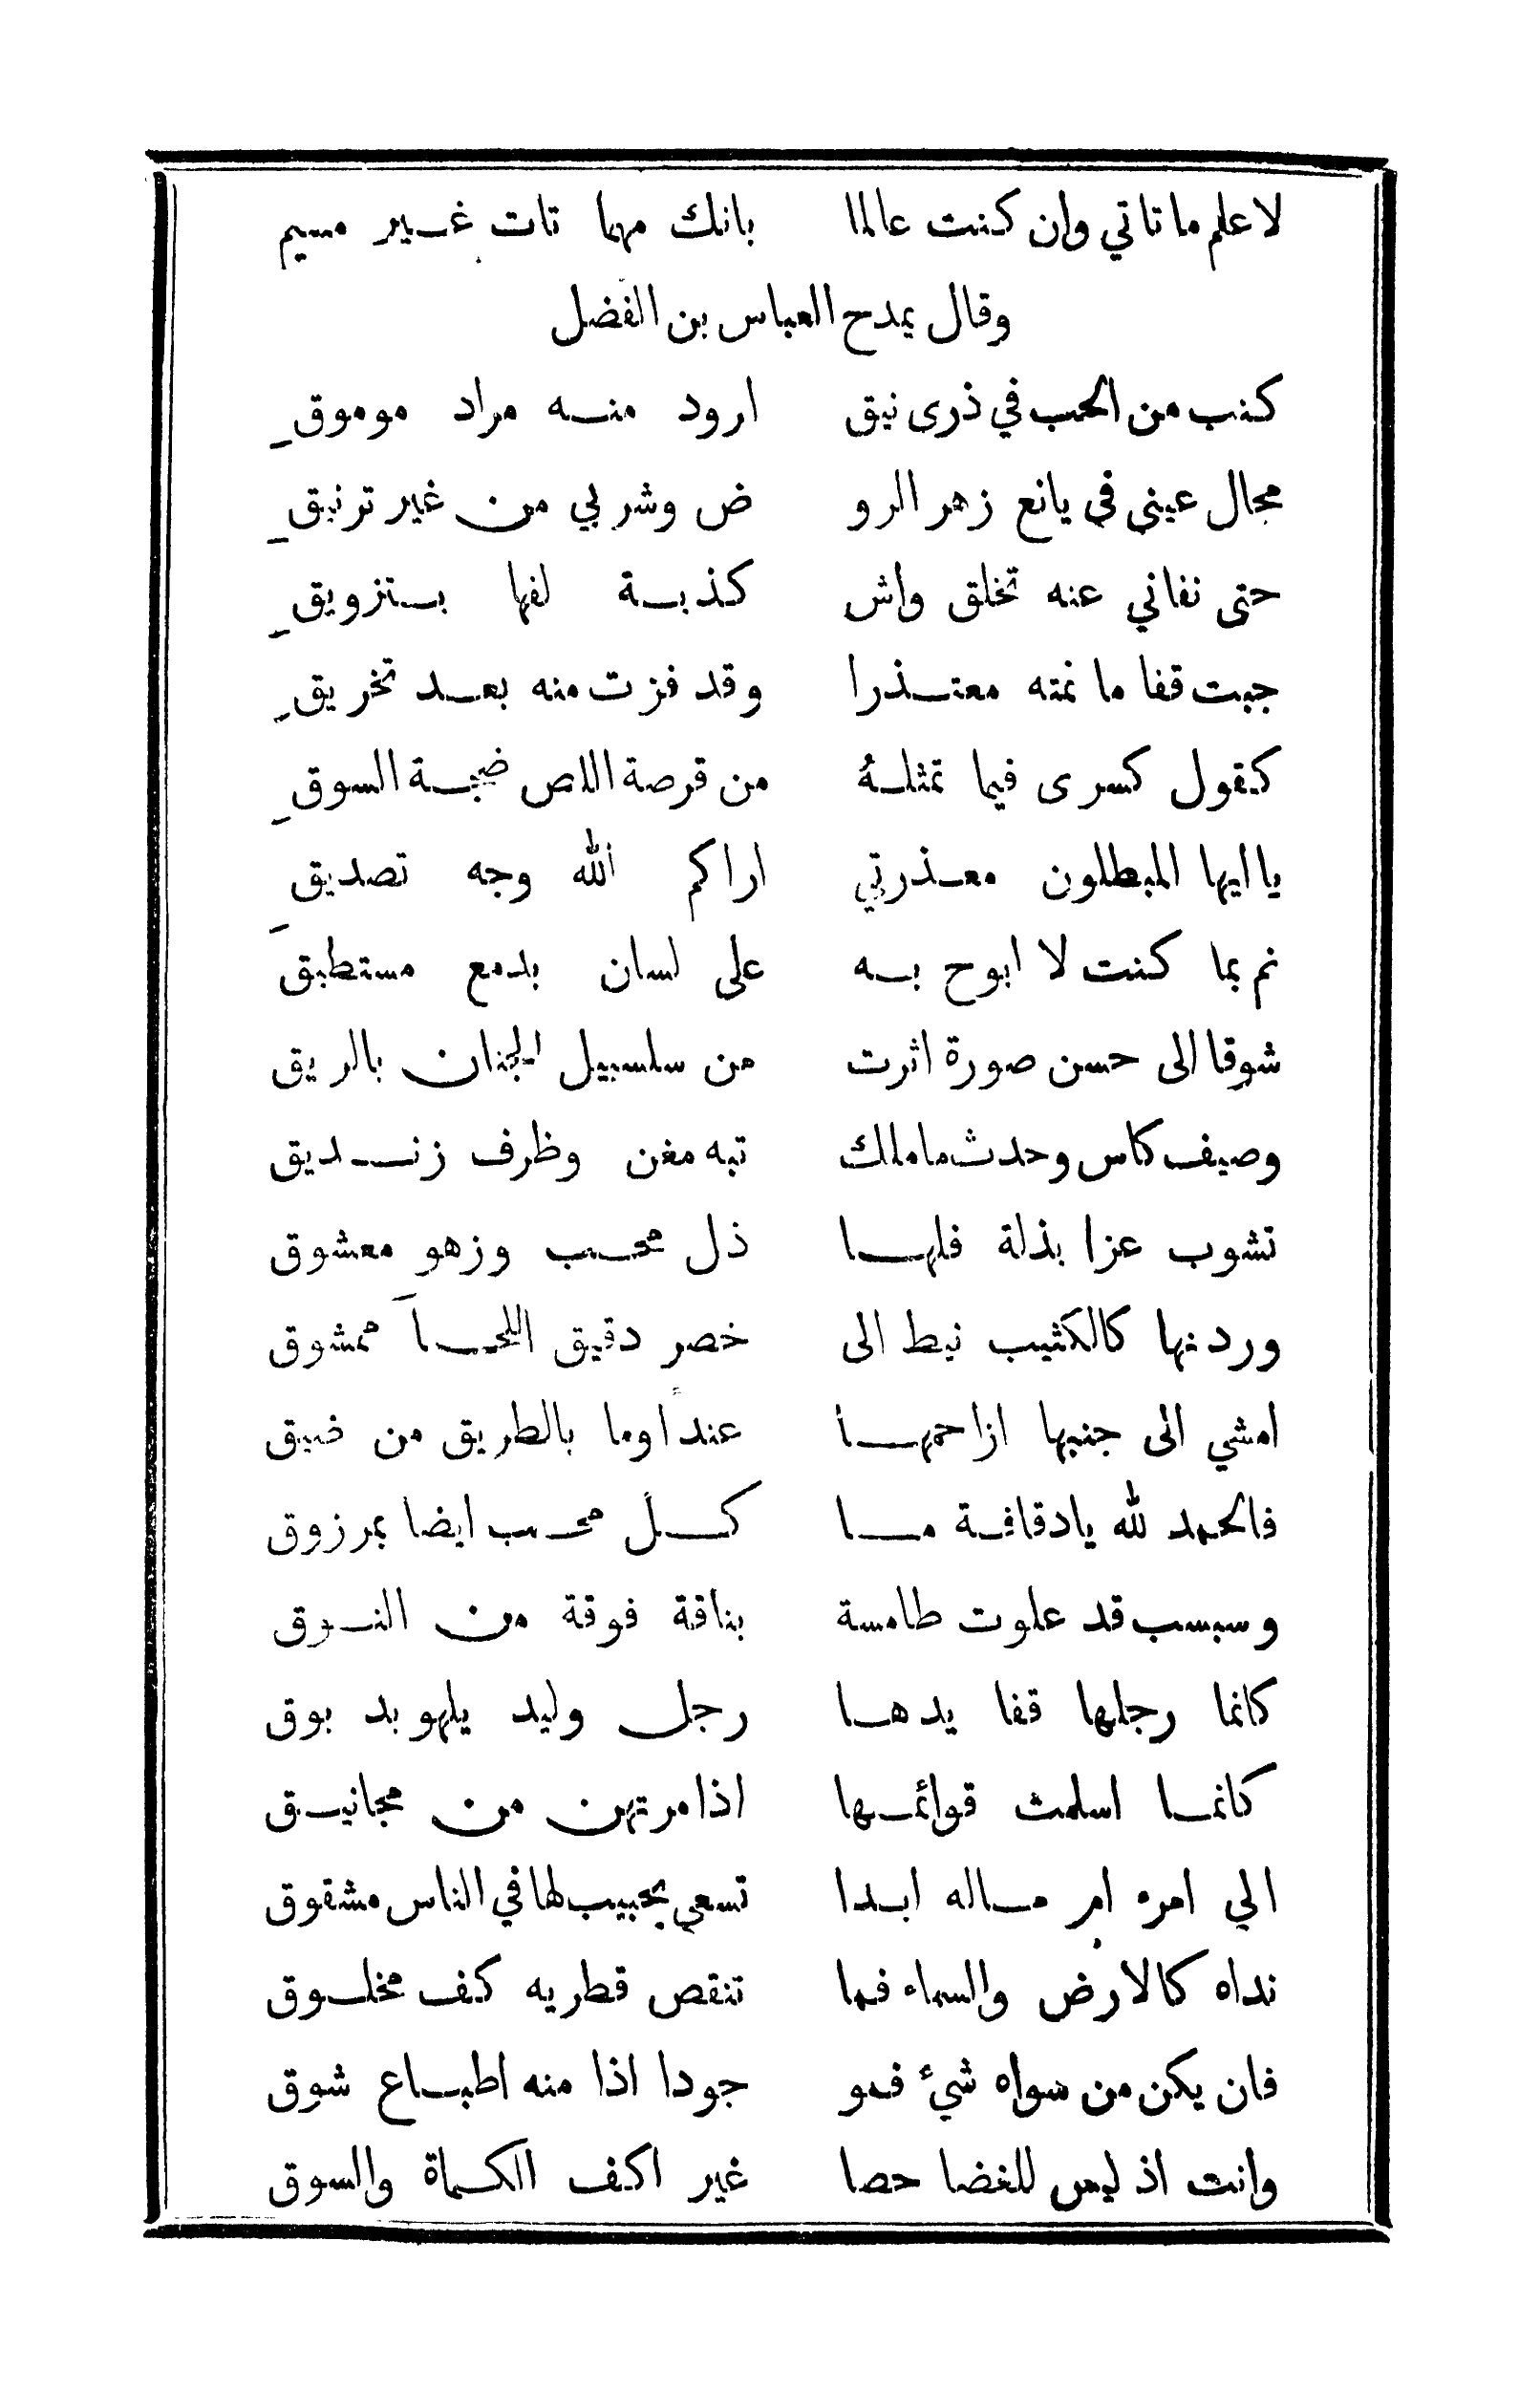 لاعلم ما تاتي وان كنت عالما بانك مهما تات غير مسيم
وقال يمدح العباس بن الفضل
كنب من الحب في ذرى نيق ارود منه مراد موموق
مجال عيني في يانع زهر الرو ض وشربي من غير ترنيق
حتى نفاني عنه تخلق واش كذبة لفها بتزويق
جبت قفا ما نمته معتذرا وقد فزت منه بعد تخريق
كقول كسرى فيما تمثلهُ من قرصة اللص ضجة السوق
يا ايها المبطلون معذرتي اراكم الله وجه تصديق
نم بما كنت لا ابوح به على لسان بدمع مستطيق
شوقا الى حسن صورة اثرت من سلسبيل الجنان بالريق
وصيف كاس وحدث ماملك تيه مغن وظرف زنديق
تشوب عزا بذلة فلها ذل محب وزهو معشوق
وردنها كالكثيب نيط الى خصر دقيق اللحا ممشوق
امشي الى جنبها ازاحمها عنداً وما بالطريق من ضيق
فالحمد لله يادقافة ما كل محب ايضا بمرزوق
وسبسب قد علوت طامسة بناقة فوقة من النوق
كانما رجلها قفا يدها رجل وليد يلهو بد بوق
كانما اسلمت قوائمها اذا مرتهن من مجانيق
الي امره ام ماله ابدا تسعى بجيب لها في الناس مشقوق
نداه كالارض والسماء فما تنقص قطريه كف مخلوق
فان يكن من سواه شيء فهو جودا اذا منه اطباع شوق
وانت اذ ليس للغضا حصا غير اكف الكماة والسوق